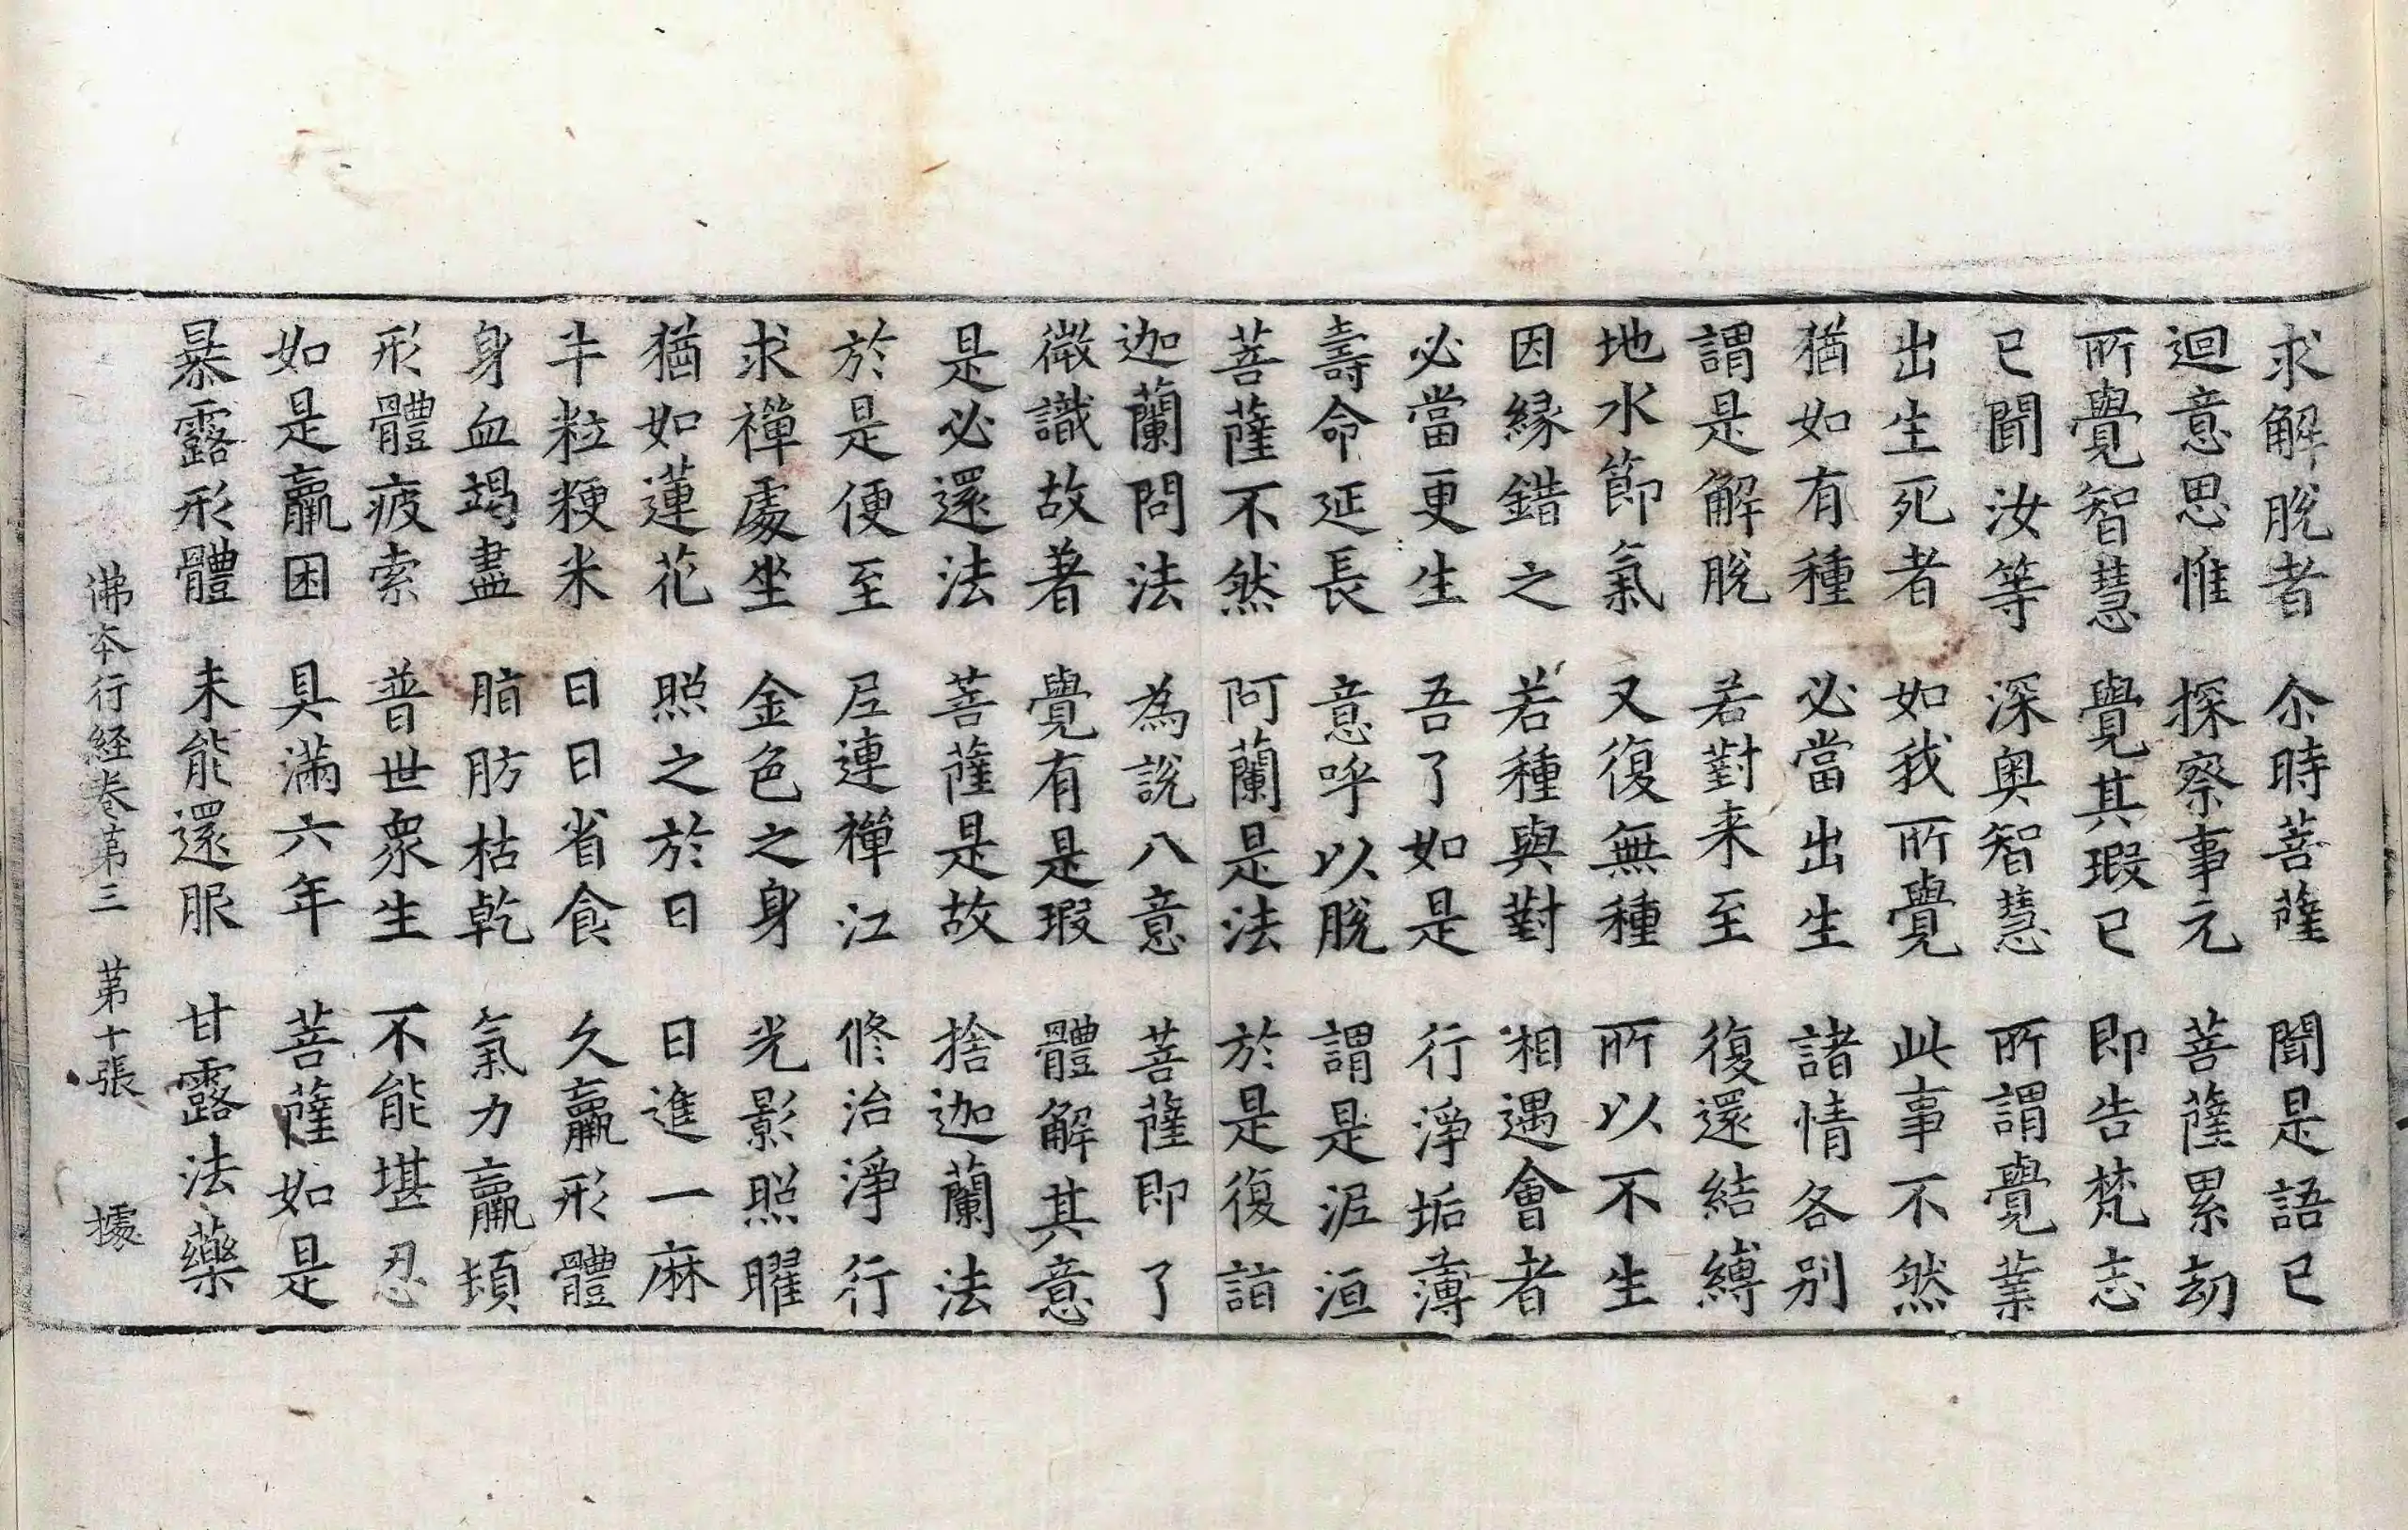 求解脫者 尒時菩薩 聞是語已
迴意思惟 探察事元 菩薩累劫
所覺智慧 覺其瑕已 即告梵志
已聞汝等 深奧智慧 所謂覺業
出生死者 如我所覺 此事不然
猶如有種 必當出生 諸情各別
謂是解脫 若對来至 復還結縛
地水節氣 又復無種 所以不生
因緣錯之 若種與對 相遇會者
必當更生 吾了如是 行淨垢薄
壽命延長 意呼以脫 謂是泥洹
菩薩不然 阿蘭是法 於是復詣
迦蘭問法 為說八意 菩薩即了
微識故著 覺有是瑕 體解其意
是必還法 菩薩是故 捨迦蘭法
於是便至 尼連禪江 修治淨行
求禪處坐 金色之身 光影照曜
猶如蓮花 照之於日 日進一麻
半粒粳米 日日省食 久羸形體
身血竭盡 脂肪枯乾 氣力羸頓
形體疲索 普世衆生 不能堪忍
如是羸困 具滿六年 菩薩如是
暴露形體 未能還服 甘露法藥
佛本行経卷苐三 苐十張 據